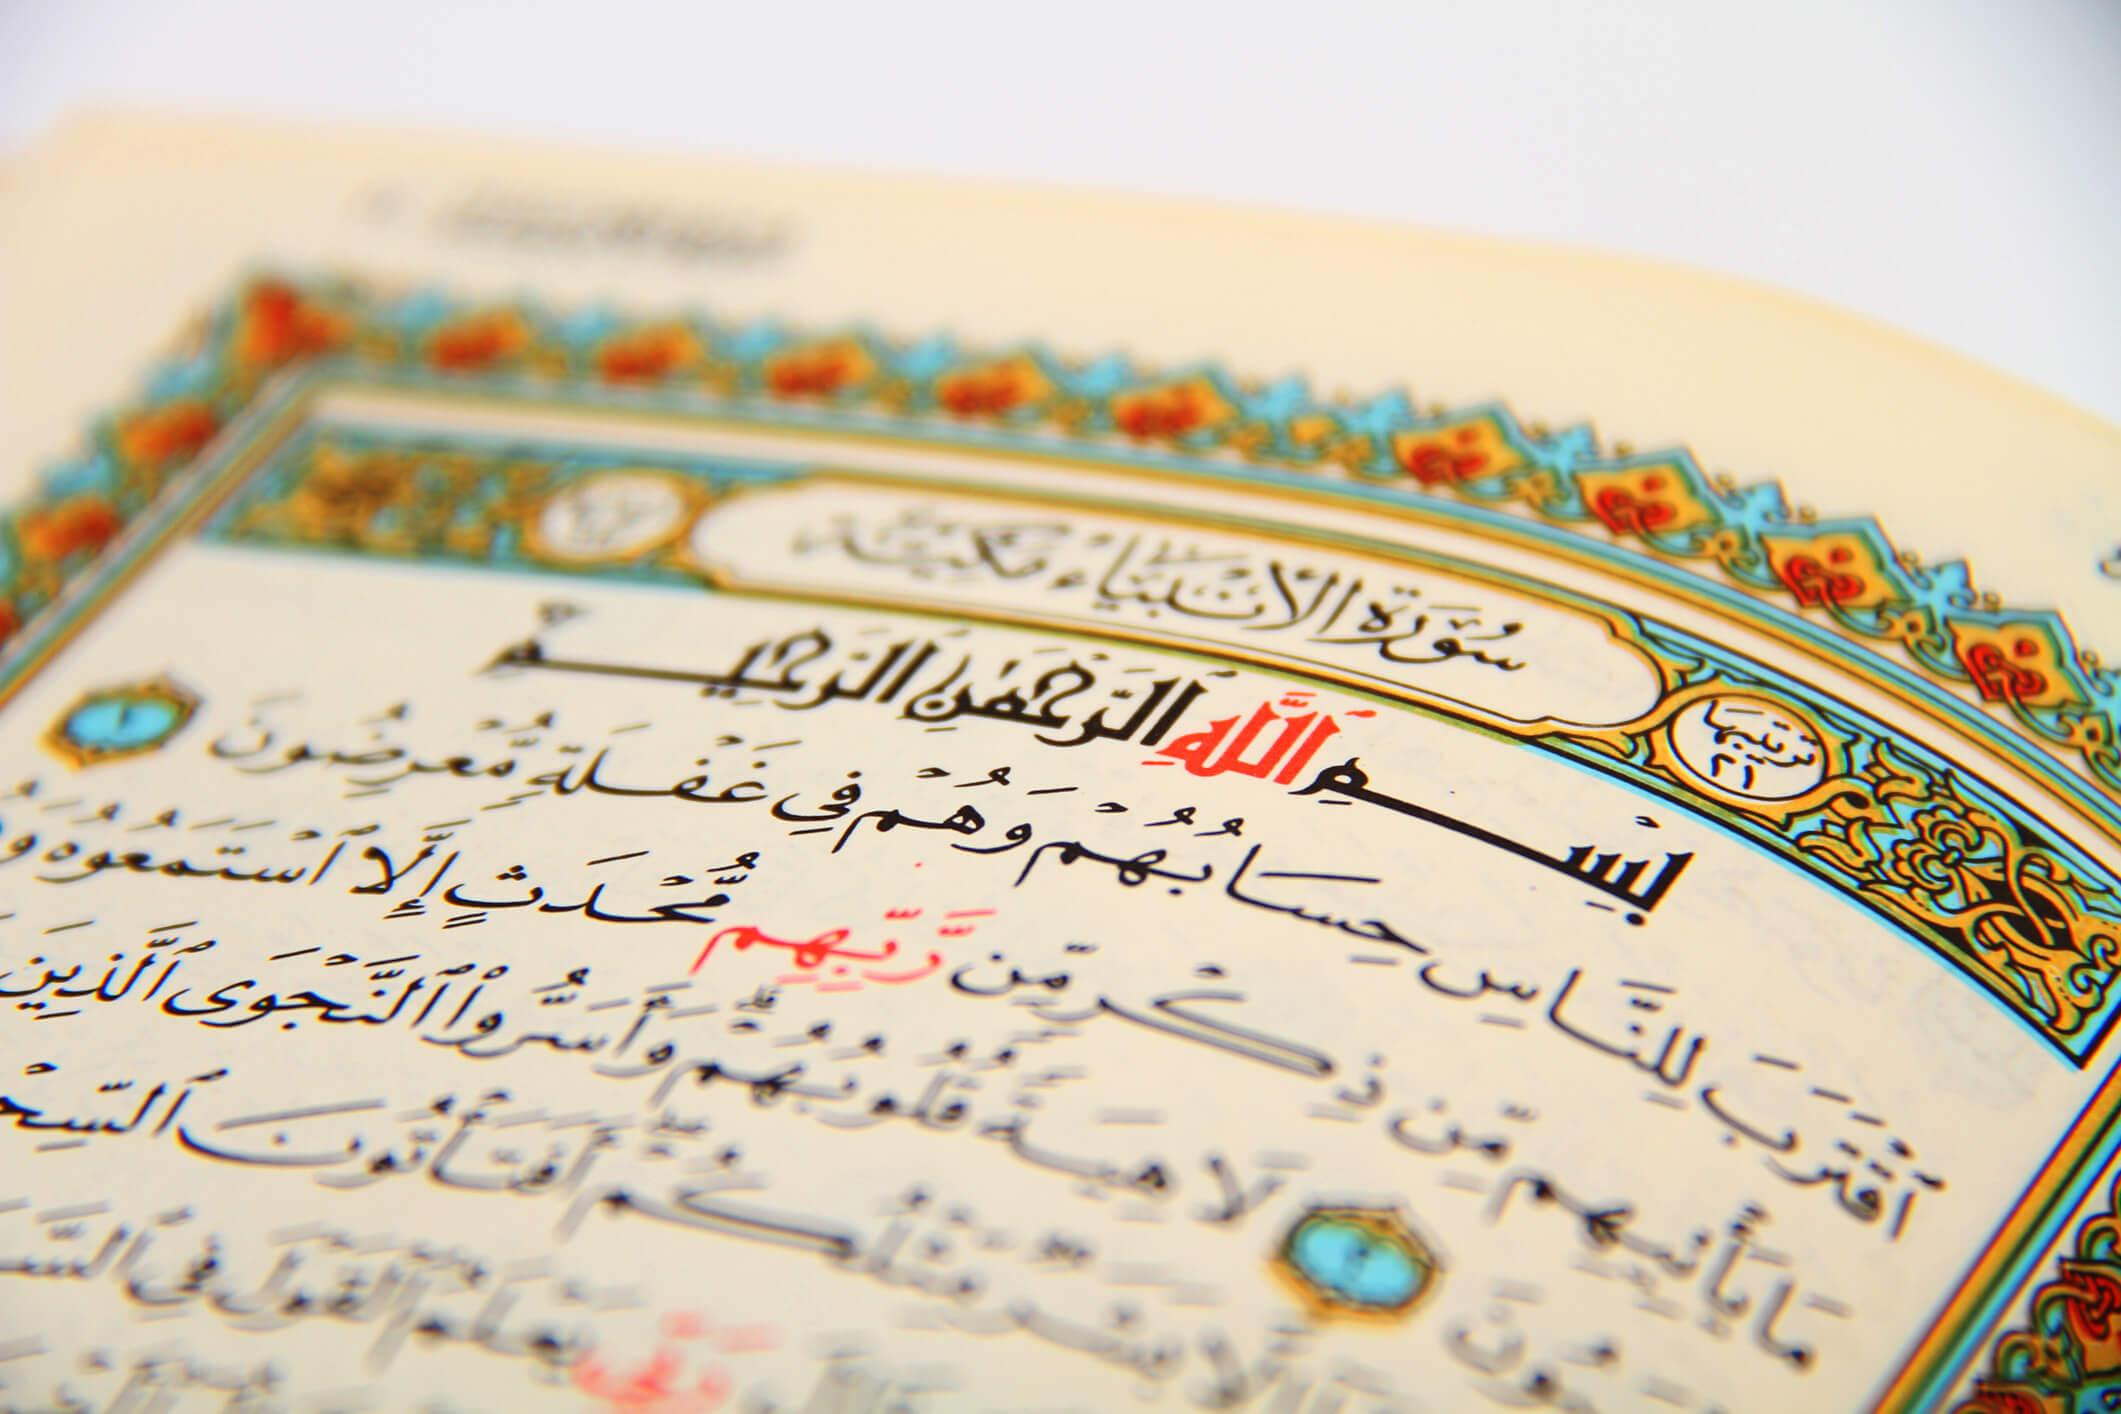 سُورَةُ الْأَنْبِيَاءِ مَكِّيَّة
ترتيبها ٢١
بِسْمِ ٱللَّهِ ٱلرَّحْمَٰنِ ٱلرَّحِيمِ
ٱقْتَرَبَ لِلنَّاسِ حِسَابُهُمْ وَهُمْ فِي غَفْلَةٍ مُّعْرِضُونَ ١
مَا يَأْتِيهِم مِّن ذِكْرٍ مِّن رَّبِّهِم مُّحْدَثٍ إِلَّا ٱسْتَمَعُوهُ
لَاهِيَةً قُلُوبُهُمْ وَأَسَرُّوا۟ ٱلنَّجْوَى ٱلَّذِينَ
مِّثْلُكُمْ أَفَتَأْتُونَ ٱلسِّحْ
رَبِّي يَعْلَمُ ٱلْقَوْلَ فِي ٱلسَّ